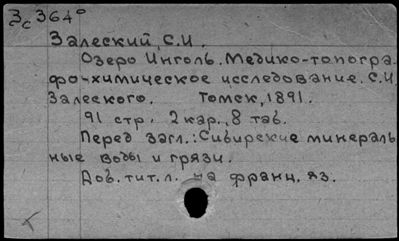 3с364°
Залеский, С.И.
Озеро Инголь. Медико-топогра-
фо-химическое исследование. С.И.
Залеского. Томск, 1891.
91 стр. 2 кар., 8 таб.
Перед загл.: Сибирские минераль-
ные воды и грязи.
Доб. тит. л. на франц. яз.